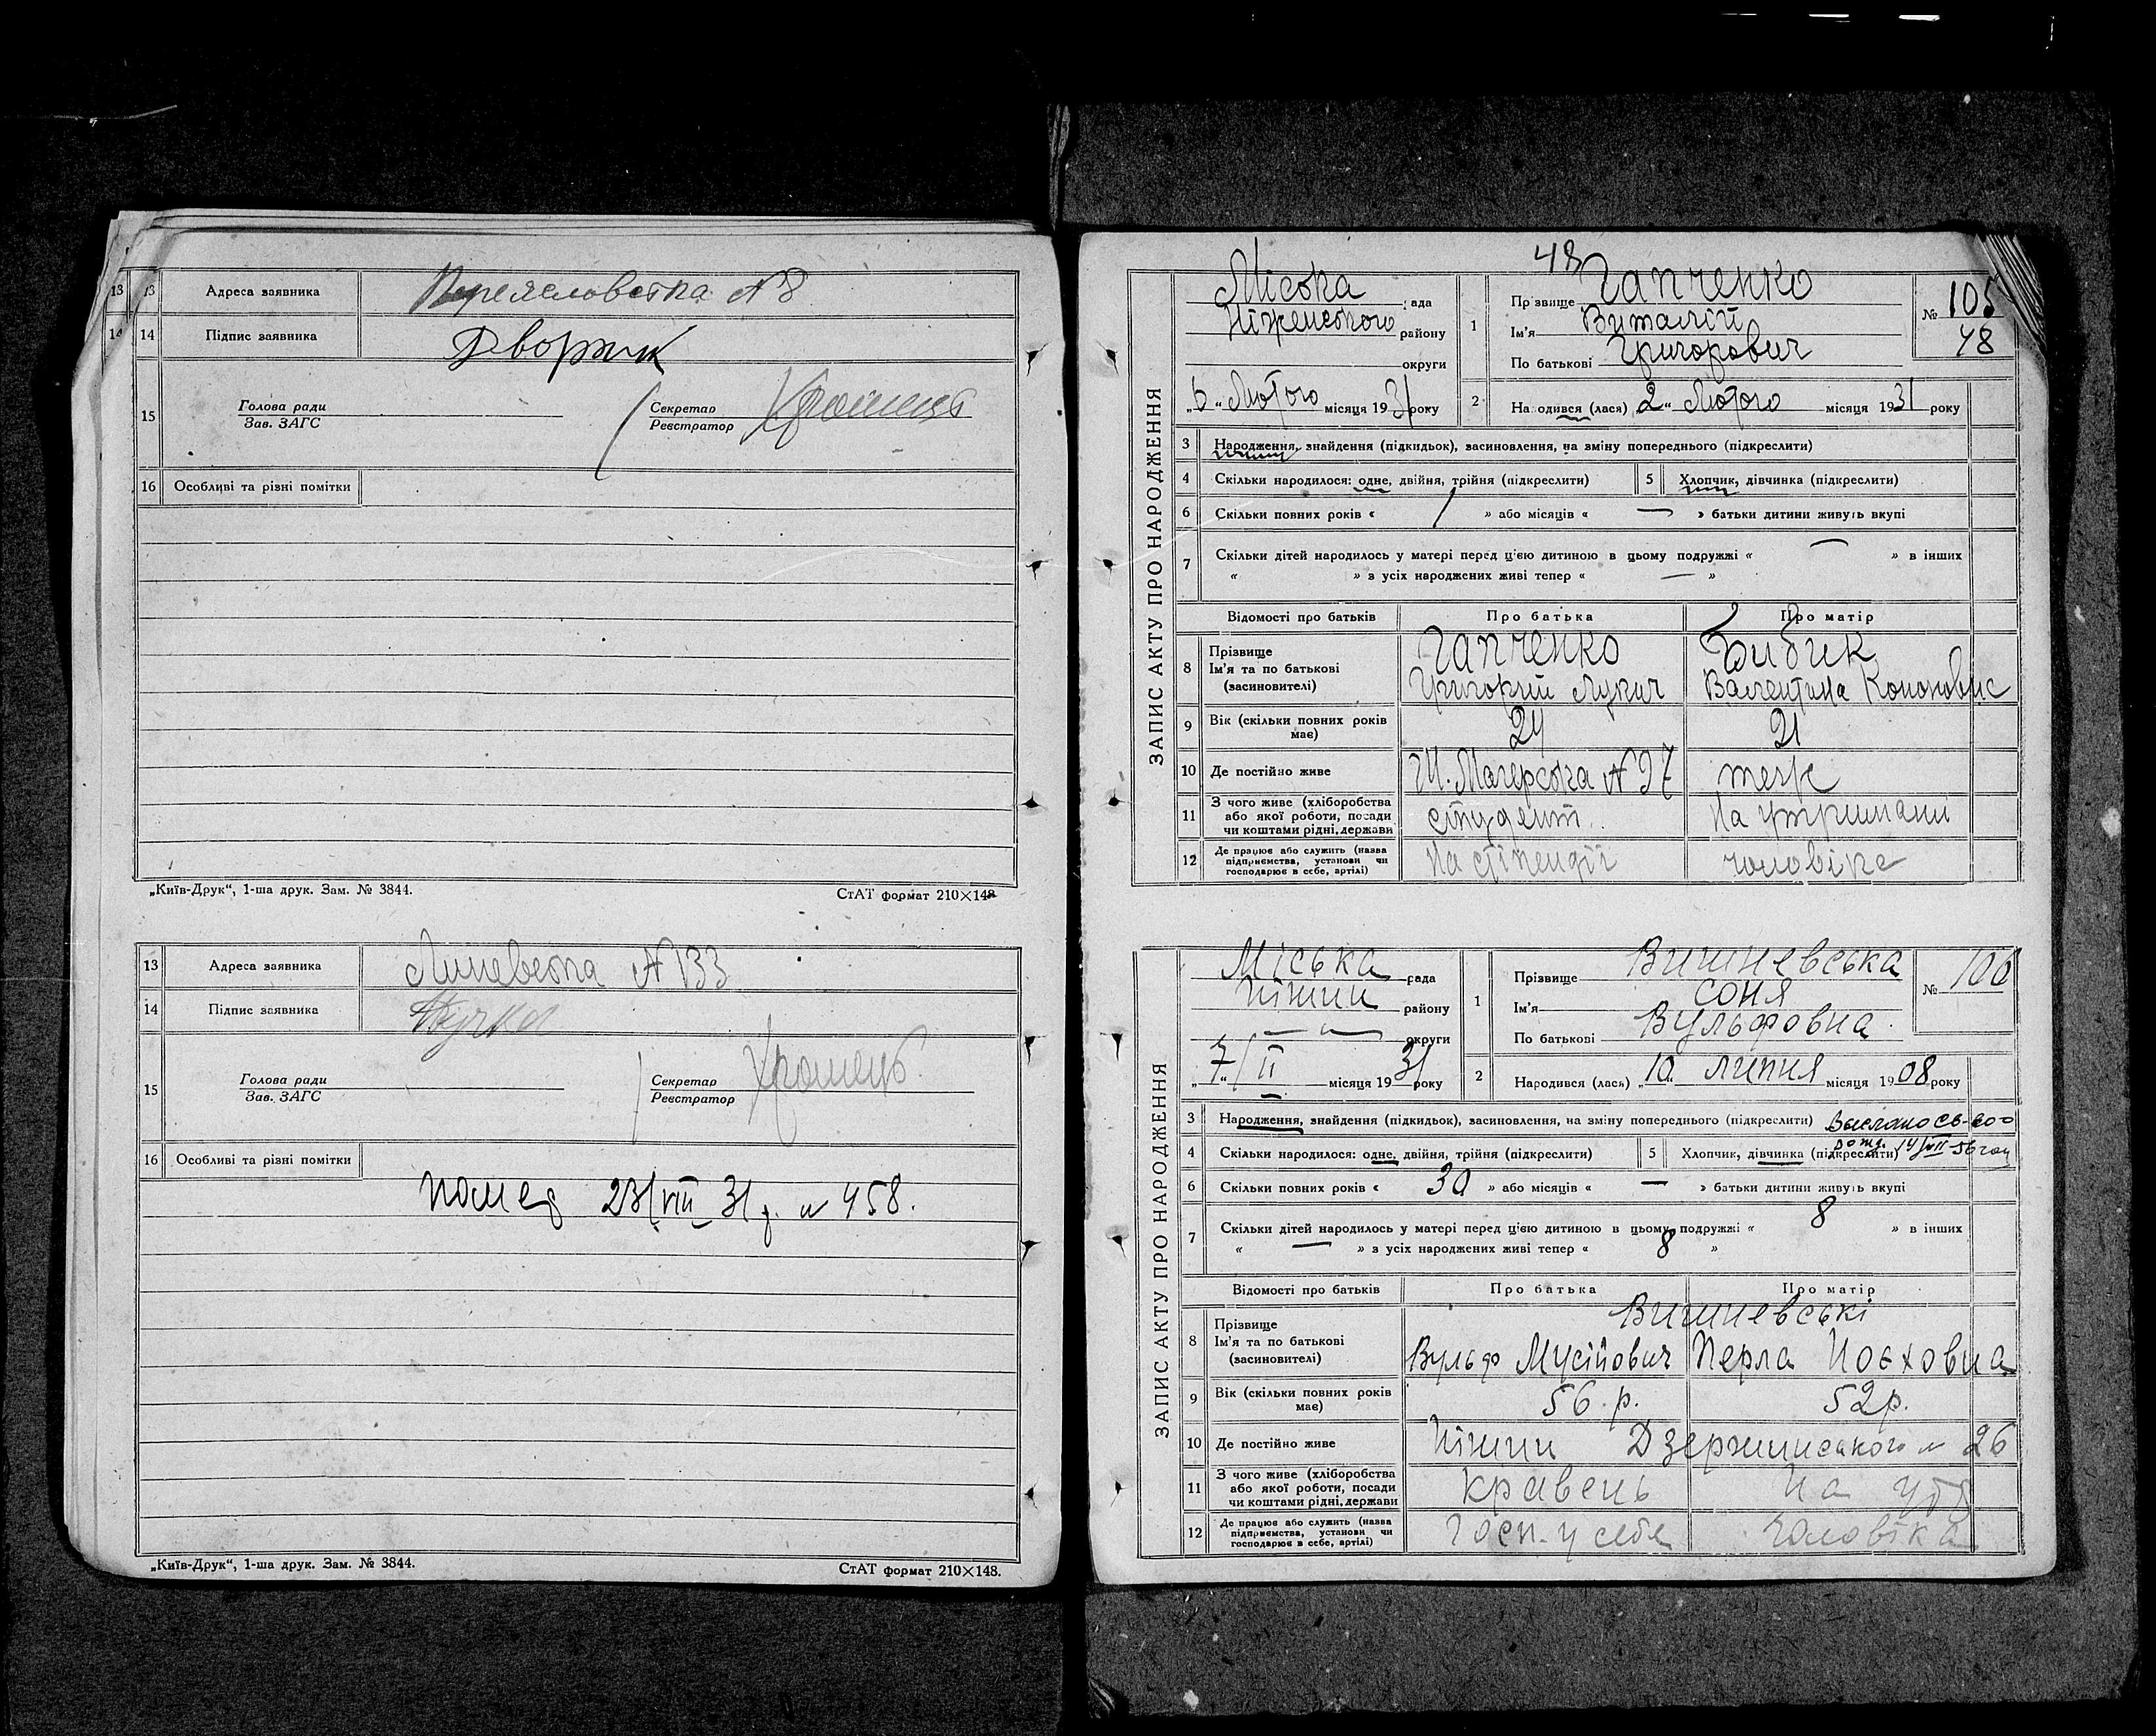 13 13 Адреса заявника Переяславська № 8
14 14 Підпис заявника Дворник
15 Голова ради
Зав. ЗАГС
Секретар
Реєстратор
16 Особливі та різні помітки
„Київ-Друк“, 1-ша друк. Зам. № 3844. СтАТ формат 210×148
13 Адреса заявника № 133
14 Підпис заявника
15 Голова ради
Зав. ЗАГС
Секретар
Реєстратор
16 Особливі та різні помітки
помер 23/VIII 31 р. № 458.
„Київ-Друк“, 1-ша друк. Зам. № 3844. СтАТ формат 210×148.
48
ЗАПИС АКТУ ПРО НАРОДЖЕННЯ
Міська рада
Ніженського району
округи
„6“ Лютого місяця 1931 року
1 Прізвище Гапченко
Ім'я Виталій
По батькові Григорович
№ 105
48
2 Народився (лася) „2“ Лютого місяця 1931 року
3 Народження, знайдення (підкидьок), засиновлення, на зміну попереднього (підкреслити)
4 Скільки народилося: одне, двійня, трійня (підкреслити) 5 Хлопчик, дівчинка (підкреслити)
6 Скільки повних років « 1 » або місяців « — » батьки дитини живуть вкупі
7 Скільки дітей народилось у матері перед цією дитиною в цьому подружжі « — » в інших
« » з усіх народжених живі тепер « — »
Відомості про батьків Про батька Про матір
8 Прізвище Ім'я та по батькові (засиновителі) Гапченко Бибик
Григорий Лукич Валентина
9 Вік (скільки повних років має) 24 21
10 Де постійно живе № 97 теж
11 З чого живе (хліборобства або якої роботи, посади чи коштами рідні, держави студент На утримани
12 Де працює або служить (назва підприємства, установи чи господарює в себе, артілі) На стіпендії чоловіка
ЗАПИС АКТУ ПРО НАРОДЖЕННЯ
Міська рада
Ніжин району
— „ — округи
„7“/II місяця 1931 року
1 Прізвище Вишневська
Ім'я Соня
По батькові Вульфовна
№ 106
2 Народився (лась) „10“ липня місяця 1908 року
3 Народження, знайдення (підкидьок), засиновлення, на зміну попереднього (підкреслити) Выслано св-во
4 Скільки народилося: одне, двійня, трійня (підкреслити) 5 Хлопчик, дівчинка (підкреслити) рожд. 14/VII-56 год
6 Скільки повних років « 30 » або місяців « — » батьки дитини живуть вкупі
7 Скільки дітей народилось у матері перед цією дитиною в цьому подружжі « 8 » в інших
« — » з усіх народжених живі тепер « 8 »
Відомості про батьків Про батька Про матір
8 Прізвище Ім'я та по батькові (засиновителі) Вишневські
Вульф Мусійович Перла
9 Вік (скільки повних років має) 56 р. 52 р.
10 Де постійно живе Ніжин Дзержинського № 26
11 З чого живе (хліборобства або якої роботи, посади чи коштами рідні, держави кравець На утр
12 Де працює або служить (назва підприємства, установи чи господарює в себе, артілі) Госп. у себе Чоловіка